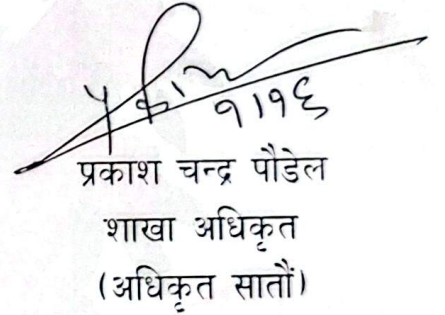 १।१६
प्रकाश चन्द्र पौडेल
शाखा अधिकृत
(अधिकृत सातौं)